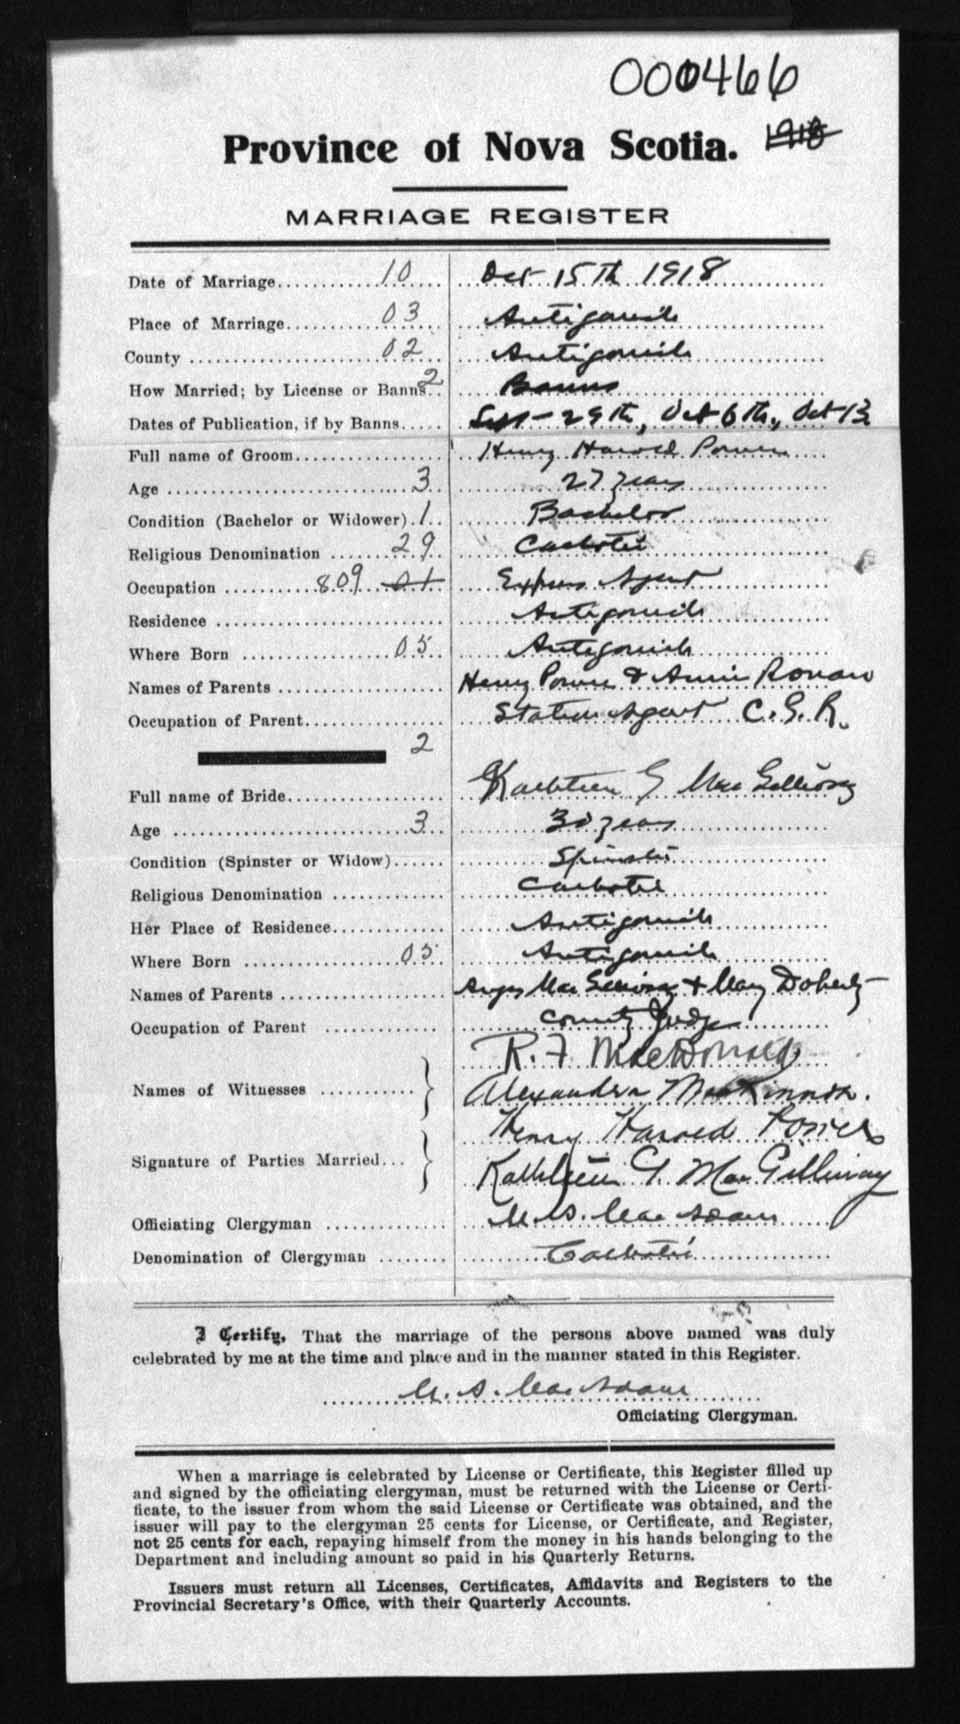 000466
Province of Nova Scotia. 1918
MARRIAGE REGISTER
Date of Marriage 10 Oct 15th 1918
Place of Marriage 03 Antigonish
County 02 Antigonish
How Married; by License or Banns 2 Banns
Dates of Publication, if by Banns Sept 29th, Oct 6th, Oct 13
Full name of Groom Henry Harold Power
Age 3 27 years
Condition (Bachelor or Widower) 1 Bachelor
Religious Denomination 29 Catholic
Occupation 809 01 Express Agent
Residence Antigonish
Where Born 05 Antigonish
Names of Parents Henry Power & Annie Ronan
Occupation of Parent Station Agent C.G.R.
2
Full name of Bride Kathleen G MacGillivray
Age 3 30 years
Condition (Spinster or Widow) Spinster
Religious Denomination Catholic
Her Place of Residence Antigonish
Where Born 05 Antigonish
Names of Parents Angus MacGillivray & Mary Doherty
Occupation of Parent County Judge
R. F MacDonald
Names of Witnesses Alexandra MacKinnon.
Henry Harold Power
Signature of Parties Married Kathleen G. MacGillivray
Officiating Clergyman MacAdam
Denomination of Clergyman Catholic
I Certify, That the marriage of the persons above named was duly
celebrated by me at the time and place and in the manner stated in this Register.
MacAdam
Officiating Clergyman.
When a marriage is celebrated by License or Certificate, this Register filled up
and signed by the officiating clergyman, must be returned with the License or Certi-
ficate, to the issuer from whom the said License or Certificate was obtained, and the
issuer will pay to the clergyman 25 cents for License, or Certificate, and Register,
not 25 cents for each, repaying himself from the money in his hands belonging to the
Department and including amount so paid in his Quarterly Returns.
Issuers must return all Licenses, Certificates, Affidavits and Registers to the
Provincial Secretary's Office, with their Quarterly Accounts.